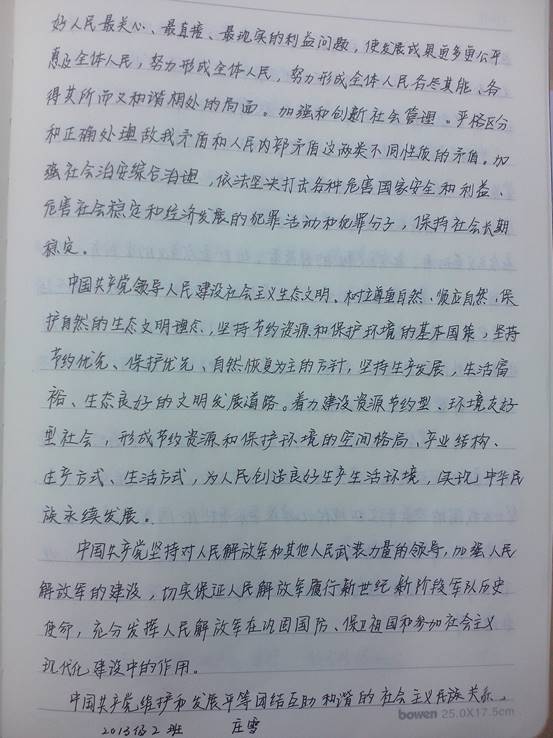 好人民最关心、最直接、最现实的利益问题，使发展成果更多更公平
惠及全体人民，努力形成全体人民，努力形成全体人民各尽其能、各
得其所而又和谐相处的局面。加强和创新社会管理。严格区分
和正确处理敌我矛盾和人民内部矛盾这两类不同性质的矛盾。加
强社会治安综合治理，依法坚决打击各种危害国家安全和利益、
危害社会稳定和经济发展的犯罪活动和犯罪分子，保持社会长期
稳定。
中国共产党领导人民建设社会主义生态文明。树立尊重自然、顺应自然、保
护自然的生态文明理念，坚持节约资源和保护环境的基本国策，坚持
节约优先、保护优先、自然恢复为主的方针，坚持生产发展，生活富
裕、生态良好的文明发展道路。着力建设资源节约型、环境友好
型社会，形成节约资源和保护环境的空间格局、产业结构、
生产方式、生活方式，为人民创造良好生产生活环境，实现中华民
族永续发展。
中国共产党坚持对人民解放军和其他人民武装力量的领导，加强人民
解放军的建设，切实保证人民解放军履行新世纪新阶段军队历史
使命，充分发挥人民解放军在巩固国防、保卫祖国和参加社会主义
现代化建设中的作用。
中国共产党维护和发展平等团结互助和谐的社会主义民族关系。
2013级2班 庄雪
bowen 25.0X17.5cm